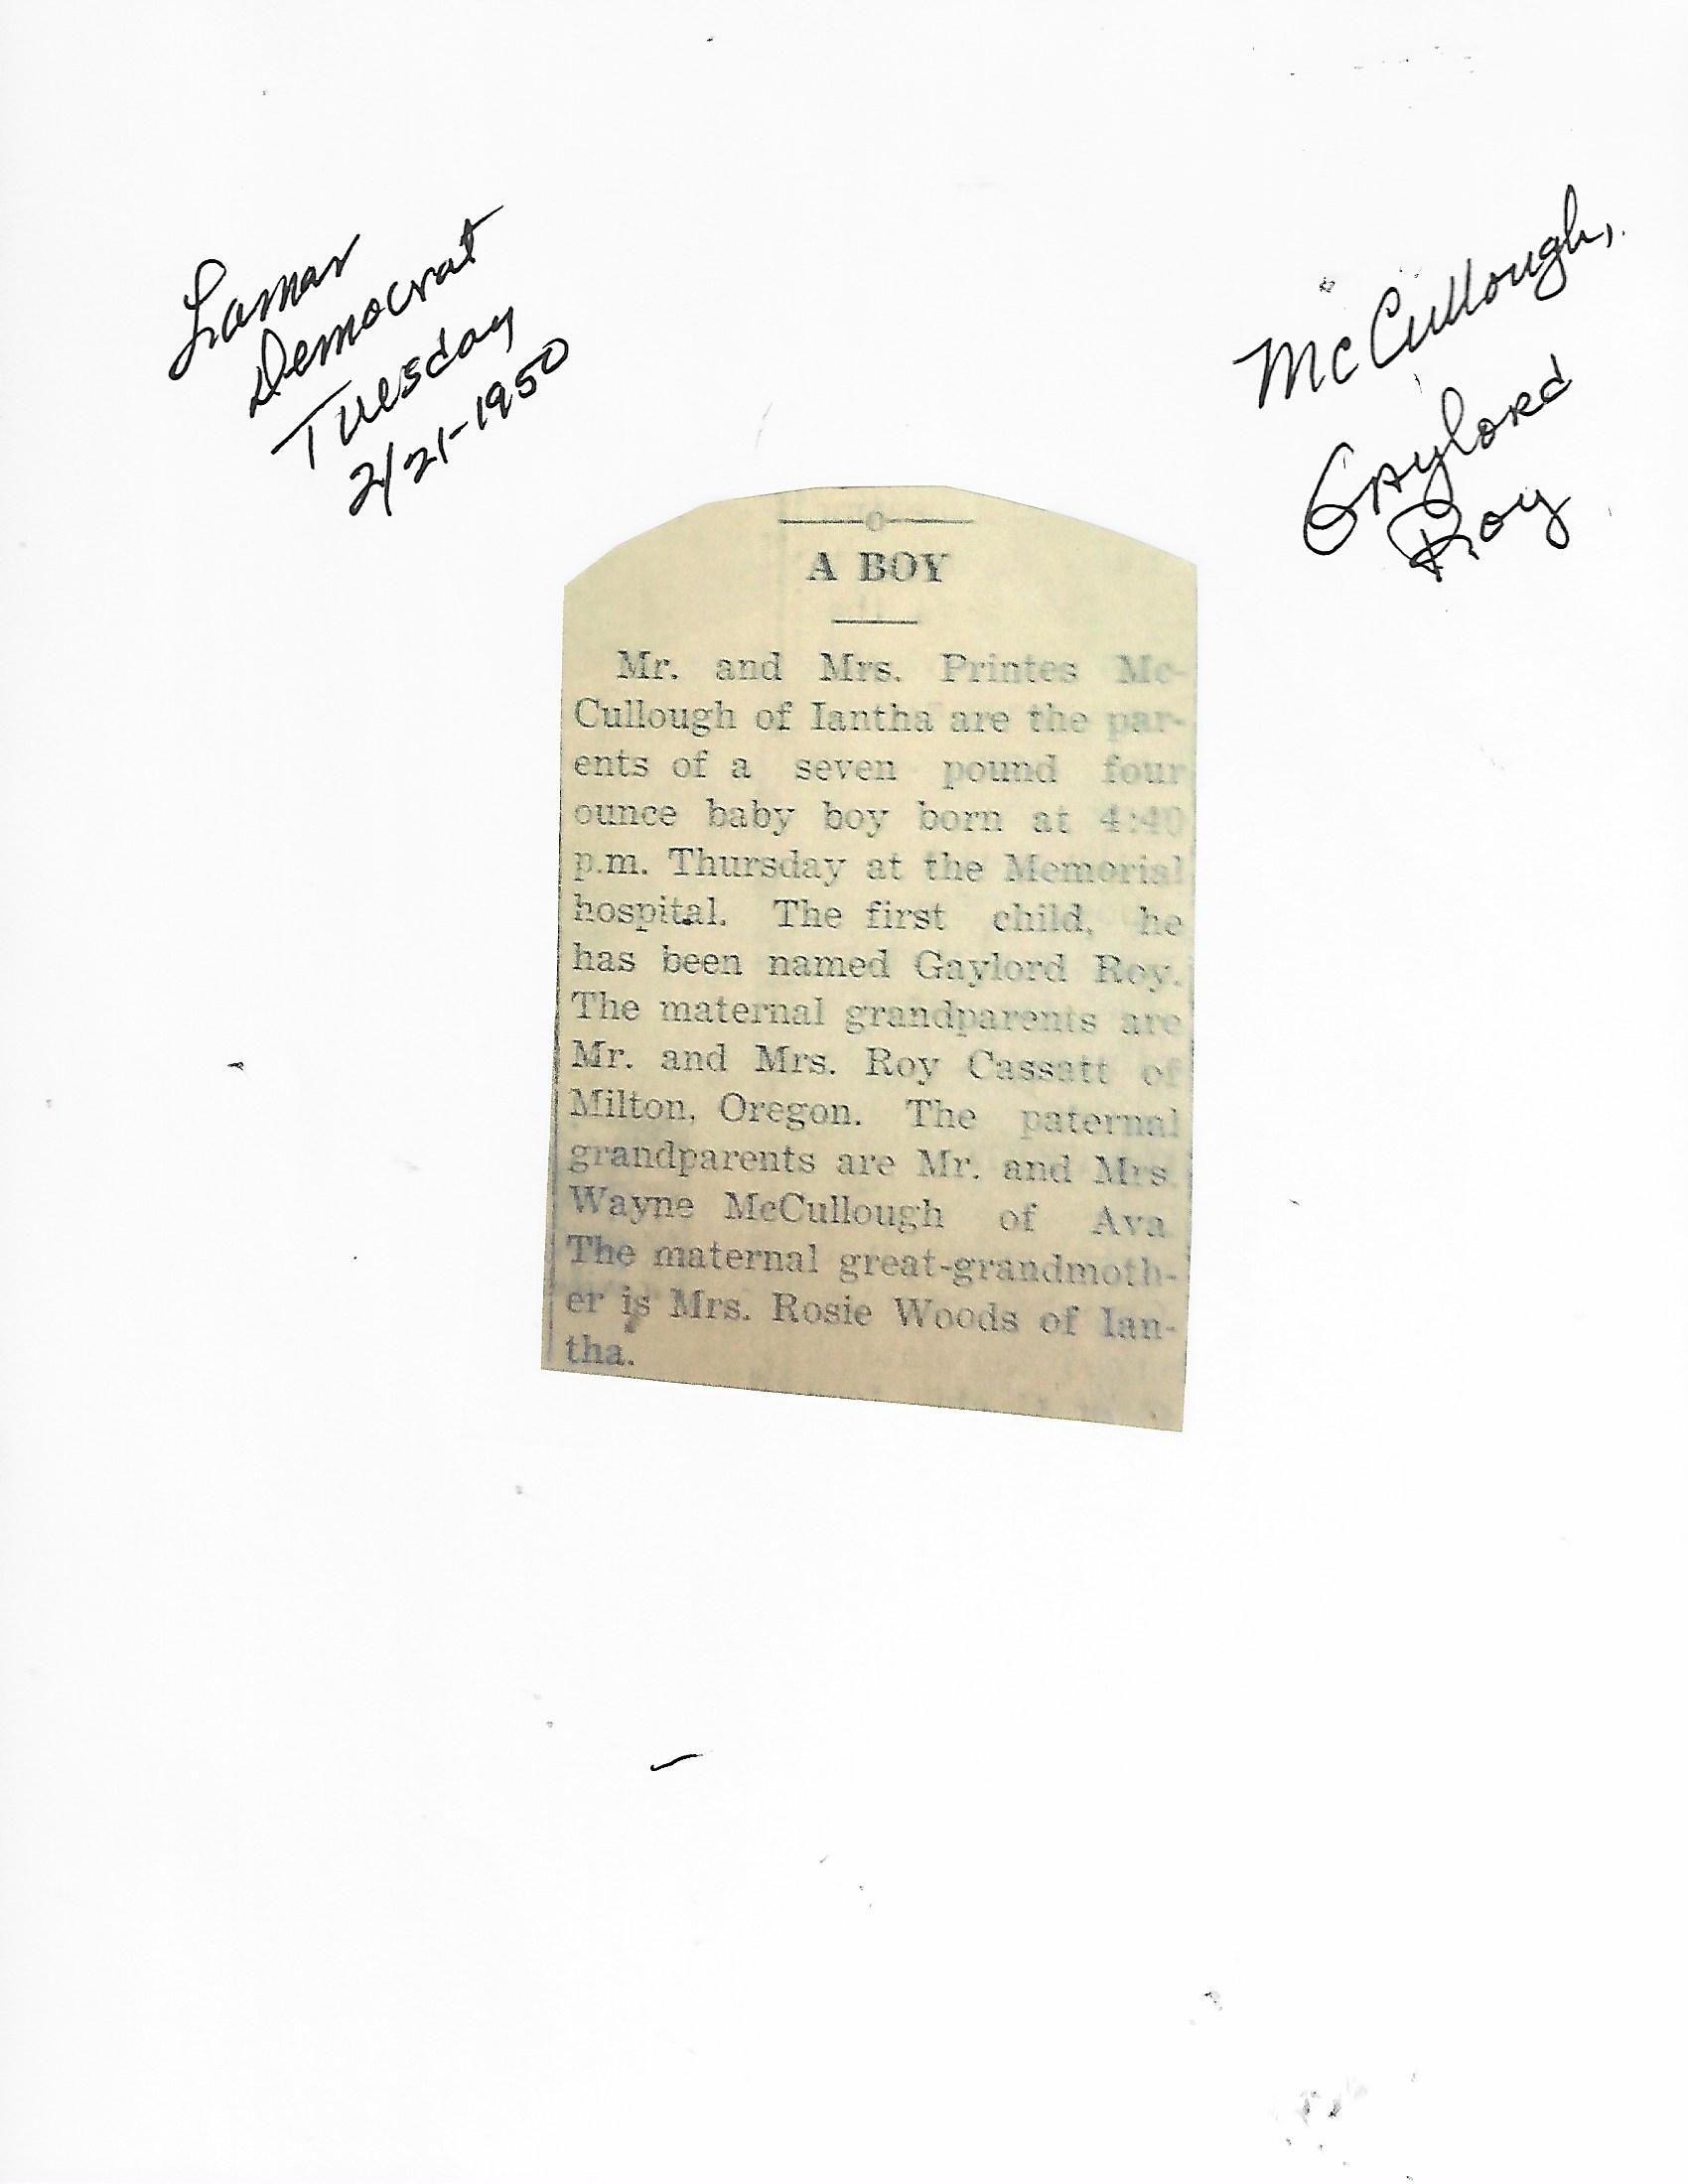 Lamar
Democrat
Tuesday
2/21-1950
McCullough,
Gaylord
Roy
o
A BOY
Mr. and Mrs. Printes Mc-
Cullough of Iantha are the par-
ents of a seven pound four
ounce baby boy born at 4:40
p.m. Thursday at the Memorial
hospital. The first child, he
has been named Gaylord Roy.
The maternal grandparents are
Mr. and Mrs. Roy Cassatt of
Milton, Oregon. The paternal
grandparents are Mr. and Mrs.
Wayne McCullough of Ava
The maternal great-grandmoth-
er is Mrs. Rosie Woods of Ian-
tha.